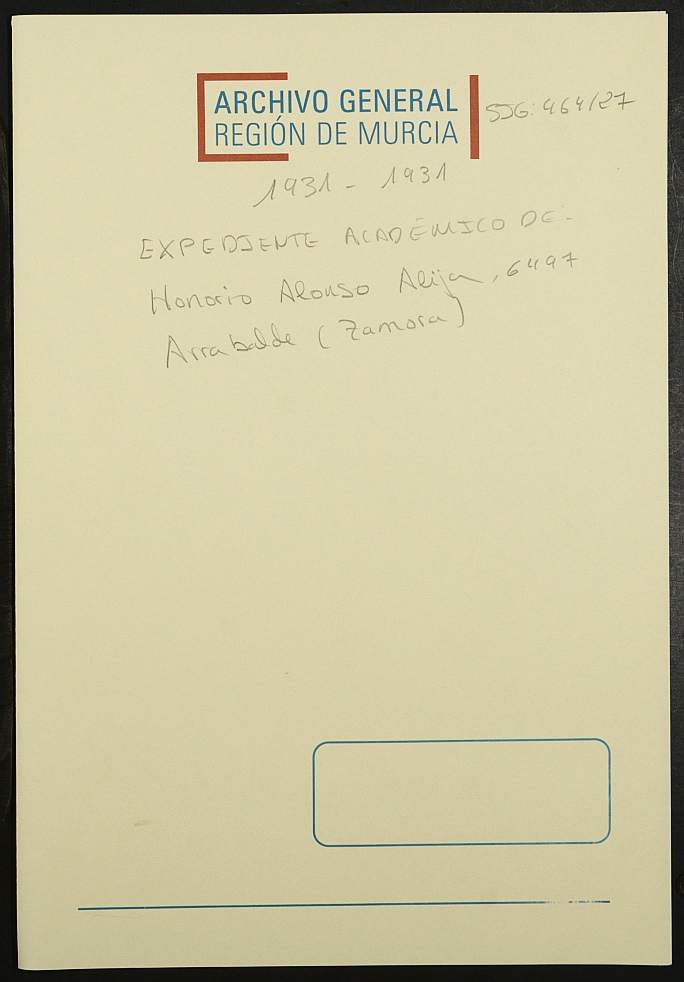 ARCHIVO GENERAL
REGIÓN DE MURCIA
SJG: 964/27
1931 - 1931
EXPEDIENTE ACADÉMICO DE:
Honorio Alonso Alija, 6497
Arrabalde (Zamora)